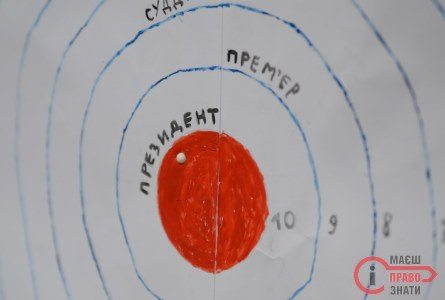 ПРЕМ'ЕР
ПРЕЗИДЕНТ
10 9 8
МАЄШ
ПРАВО
ЗНАТИ